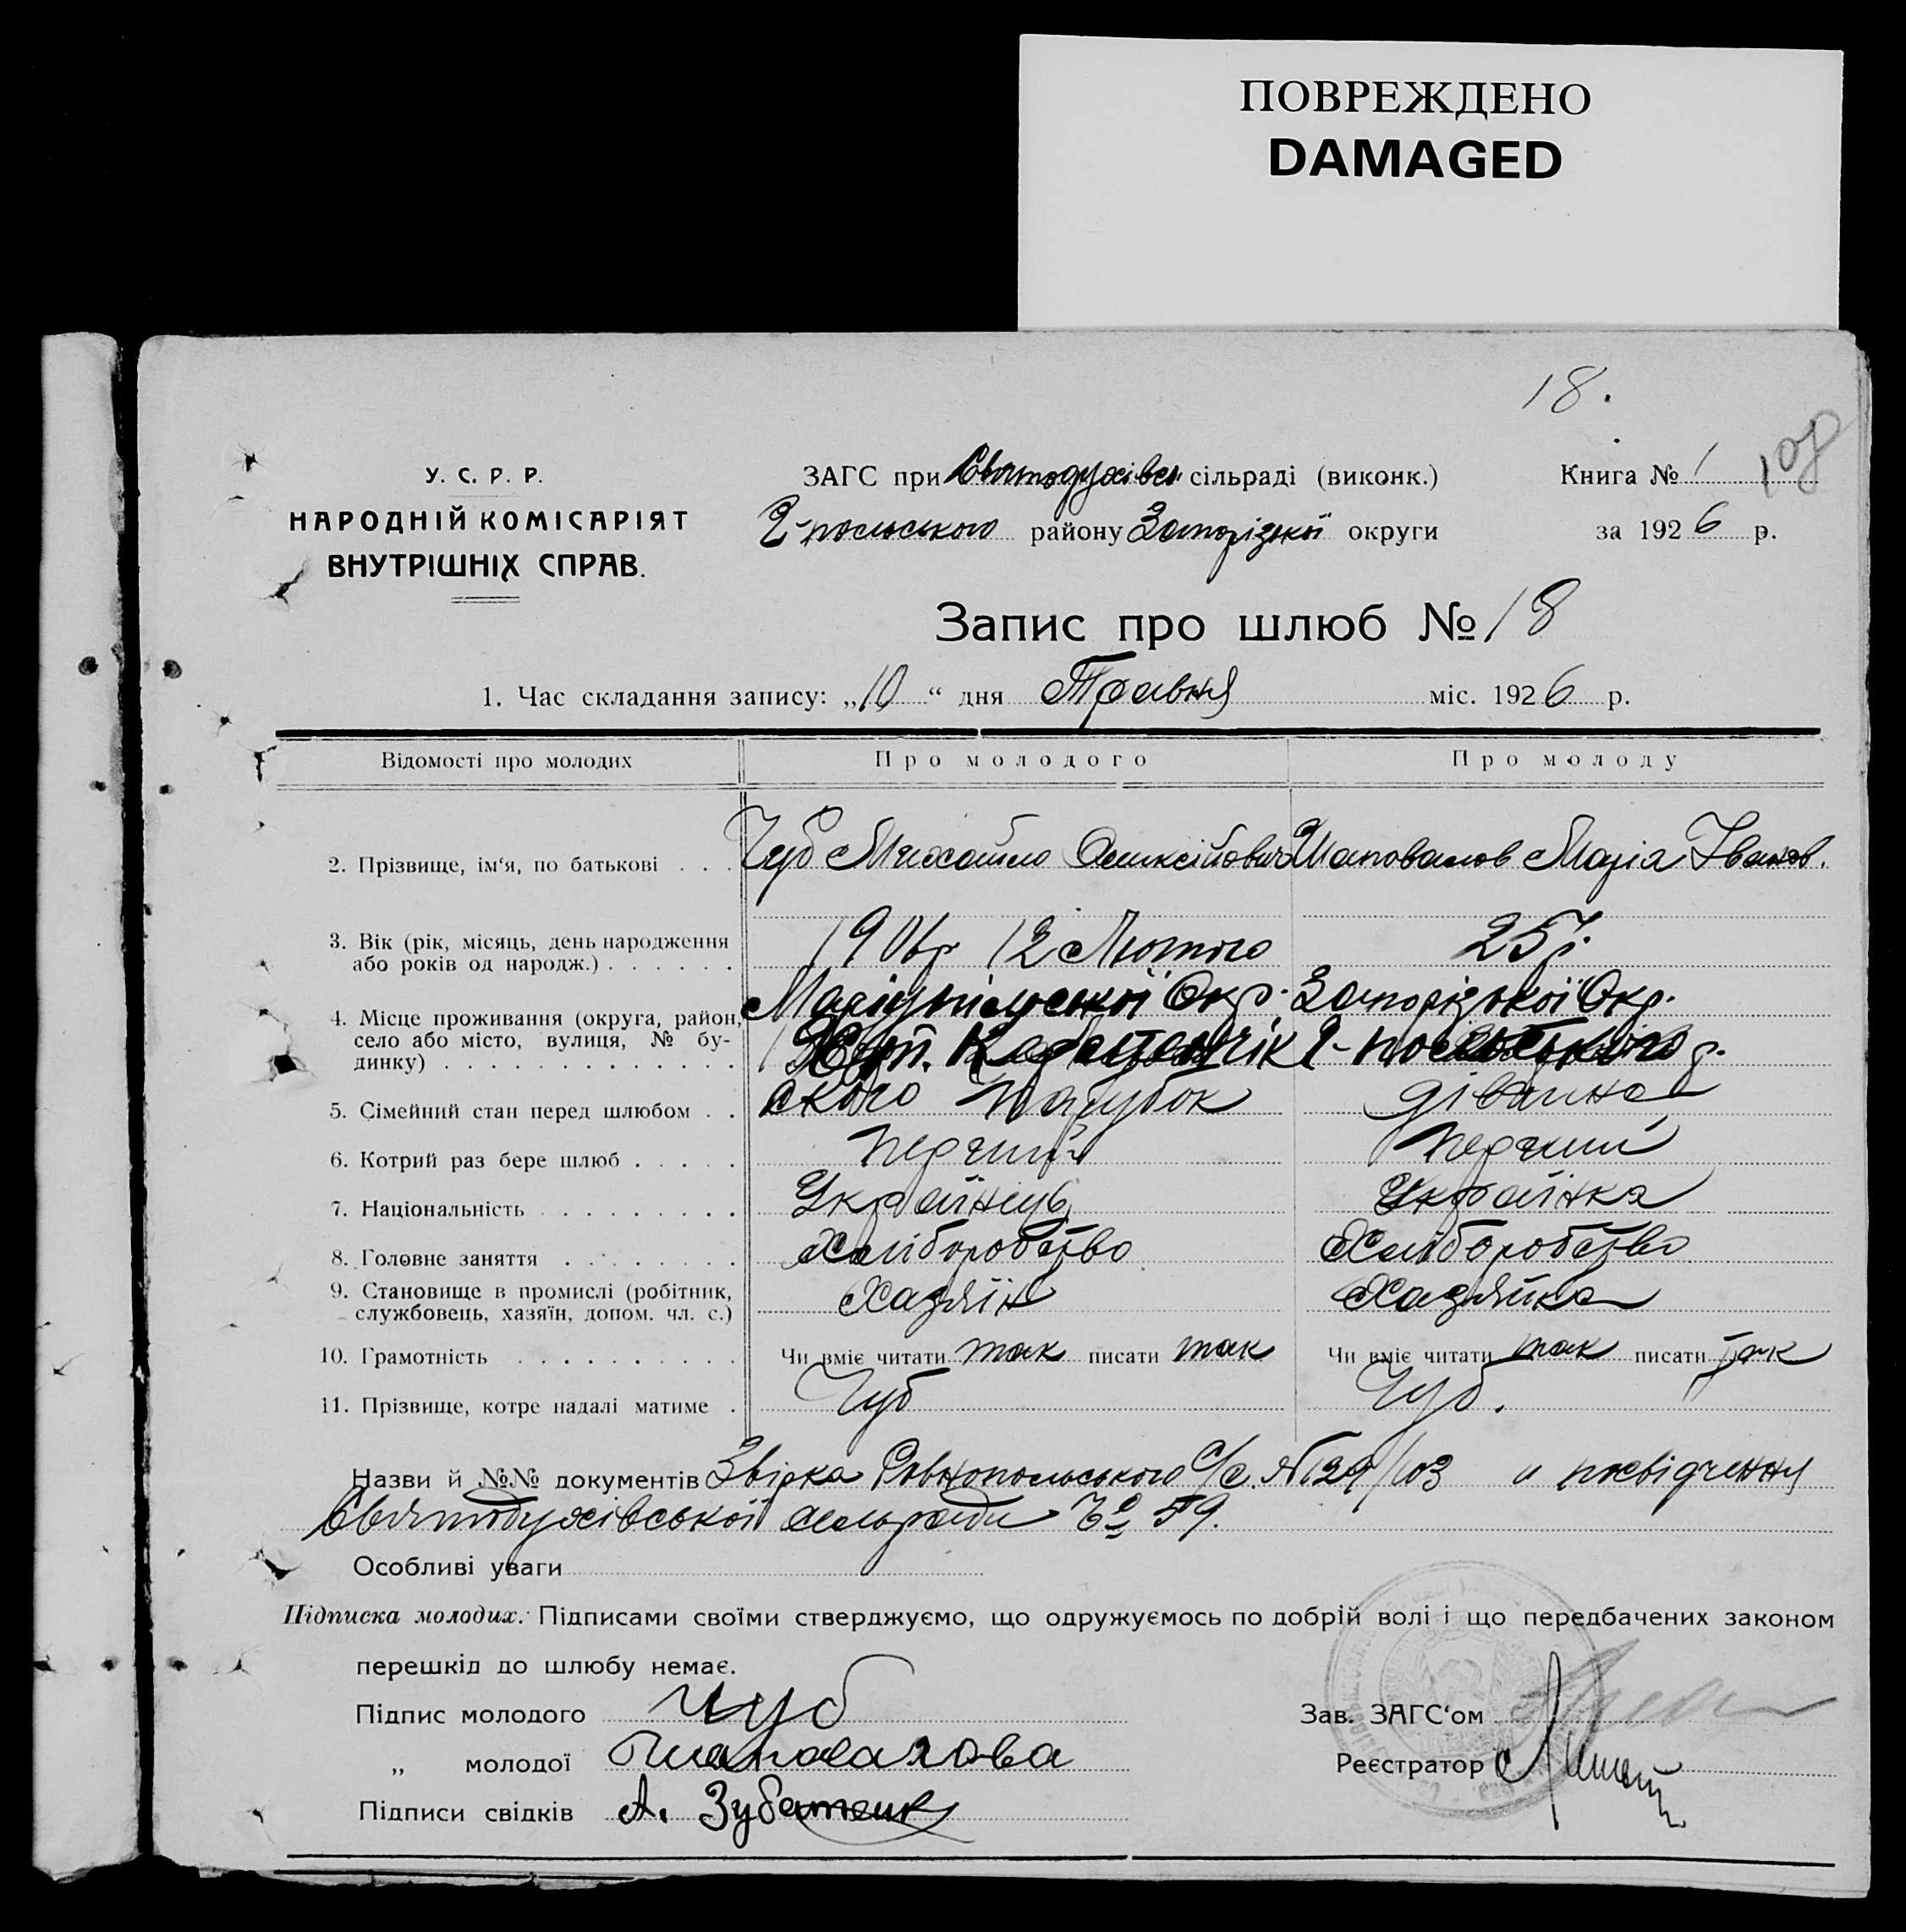 ПОВРЕЖДЕНО
DAMAGED
18.
108
У. С. Р. Р.
НАРОДНІЙ КОМІСАРІЯТ
ВНУТРІШНІХ СПРАВ.
ЗАГС при Святодухівск сільраді (виконк.)
Г-польського району Запорізької округи
Книга № 1
за 1926 р.
Запис про шлюб № 18
1. Час складання запису: „10“ дня Травня міс. 1926 р.
Відомості про молодих Про молодого Про молоду
2. Прізвище, ім‘я, по батькові . . . Чуб Михайло Олексійович Шаповалов Марія Іванов.
3. Вік (рік, місяць, день народження
або років од народж.) . . . . . . 1906р 12 Лютого 25 р.
4. Місце проживання (округа, район,
село або місто, вулиця, № бу-
динку) . . . . . . . . . . . . . Маріупільської Окр. Запорізької Окр.
Г-польського р.
5. Сімейний стан перед шлюбом . . ского Парубок дівчина
6. Котрий раз бере шлюб . . . . . перчий перчий
7. Національність . . . . . . . . . Українець Українка
8. Головне заняття . . . . . . . . Хліборобство Хліборобство
9. Становище в промислі (робітник,
службовець, хазяїн, допом. чл. с.) Хазяїн Хазяйка
10. Грамотність . . . . . . . . . . Чи вміє читати так писати так Чи вміє читати так писати так
11. Прізвище, котре надалі матиме . Чуб Чуб.
Назви й №№ документів Звірка Ровнопольського С/с. № 29/103 и посвідчення
Святодухівської сельради Чо 59.
Особливі уваги
Підписка молодих. Підписами своїми стверджуємо, що одружуємось по добрій волі і що передбачених законом
перешкід до шлюбу немає.
Підпис молодого Чуб
Зав. ЗАГС‘ом
„ молодої Шаповалова
Реєстратор
Підписи свідків А. Зубатенк